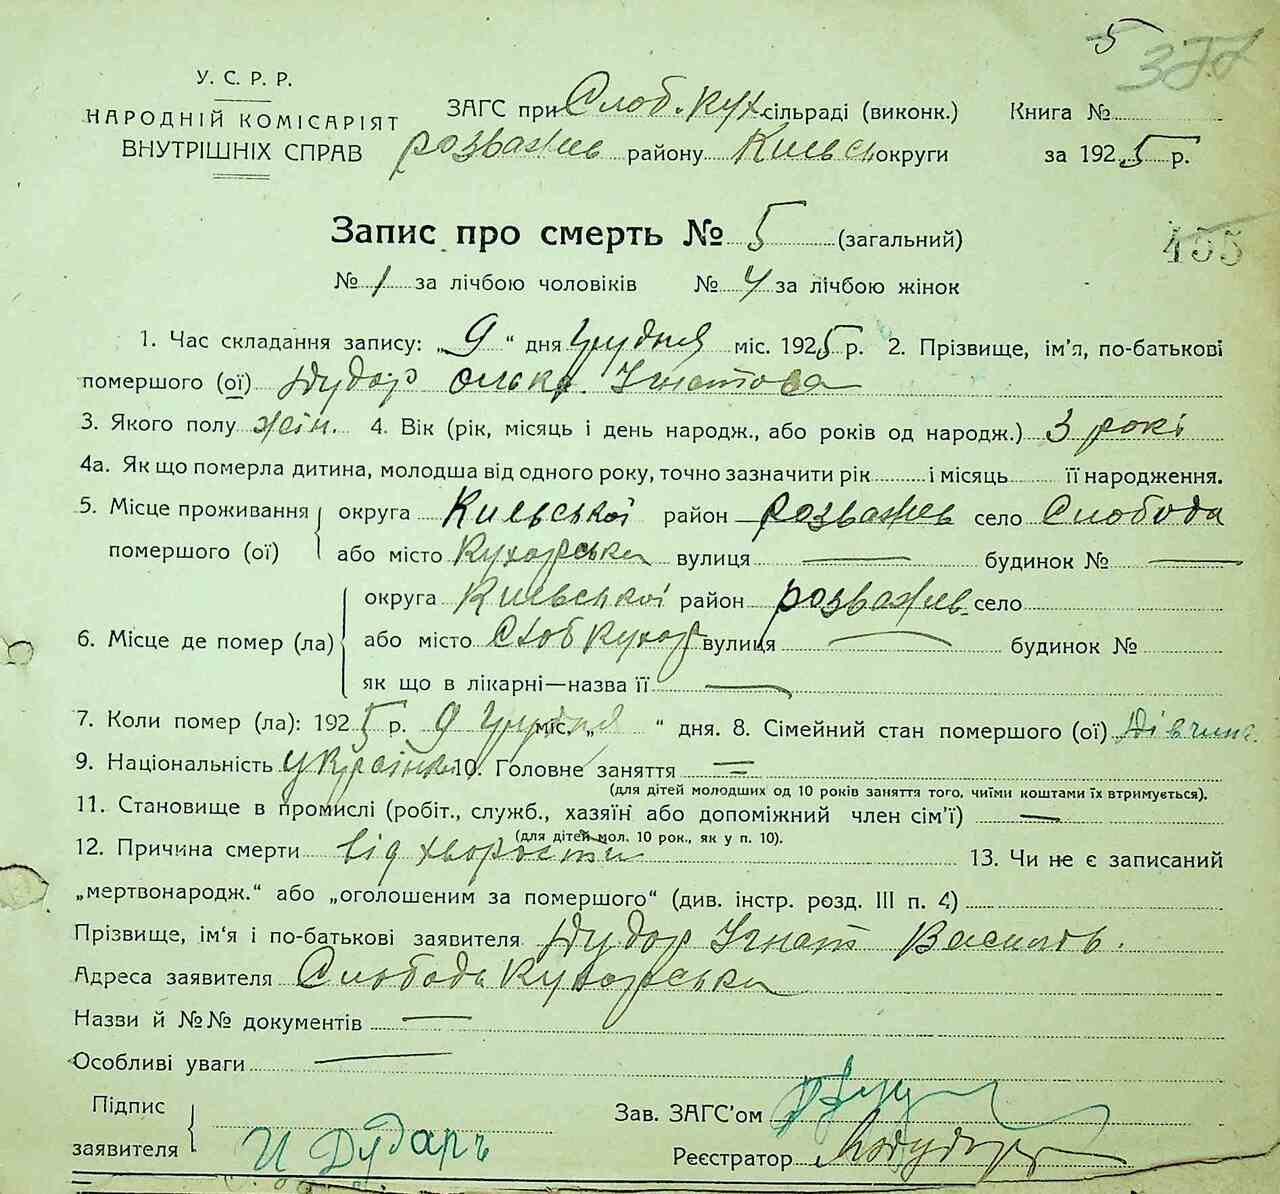 5
377
У. С. Р. Р.
НАРОДНІЙ КОМІСАРІЯТ
ВНУТРІШНІХ СПРАВ
ЗАГС при Слоб. Кух. сільраді (виконк.) Книга №
розважев району Київсь округи за 1925 р.
Запис про смерть № 5 (загальний)
455
№ 1 за лічбою чоловіків № 4 за лічбою жінок
1. Час складання запису: „9“ дня Грудня міс. 1925 р. 2. Прізвище, ім'я, по-батькові
помершого (ої) Дудар Ольга Ігнатова
3. Якого полу жін. 4. Вік (рік, місяць і день народж., або років од народж.) 3 рокі
4а. Як що померла дитина, молодша від одного року, точно зазначити рік і місяць її народження.
5. Місце проживання помершого (ої) округа Киевської район розважев село Слобода
або місто Кухарська вулиця — будинок № —
6. Місце де помер (ла) округа Киевської район розважев. село
або місто Слоб Кухар вулиця — будинок №
як що в лікарні—назва її —
7. Коли помер (ла): 1925 р. 9 Грудня міс. „ “ дня. 8. Сімейний стан помершого (ої) Дівчина
9. Національність українка 10. Головне заняття =
(для дітей молодших од 10 років заняття того, чиїми коштами їх втримується).
11. Становище в промислі (робіт., служб., хазяїн або допоміжний член сім'ї) —
(для дітей мол. 10 рок., як у п. 10).
12. Причина смерти від хворости 13. Чи не є записаний
„мертвонародж.“ або „оголошеним за помершого“ (див. інстр. розд. III п. 4)
Прізвище, ім'я і по-батькові заявителя Дудар Ігнат Василь.
Адреса заявителя Слобода Кухарська
Назви й №№ документів —
Особливі уваги —
Підпис заявителя И Дударъ
Зав. ЗАГС'ом
Реєстратор